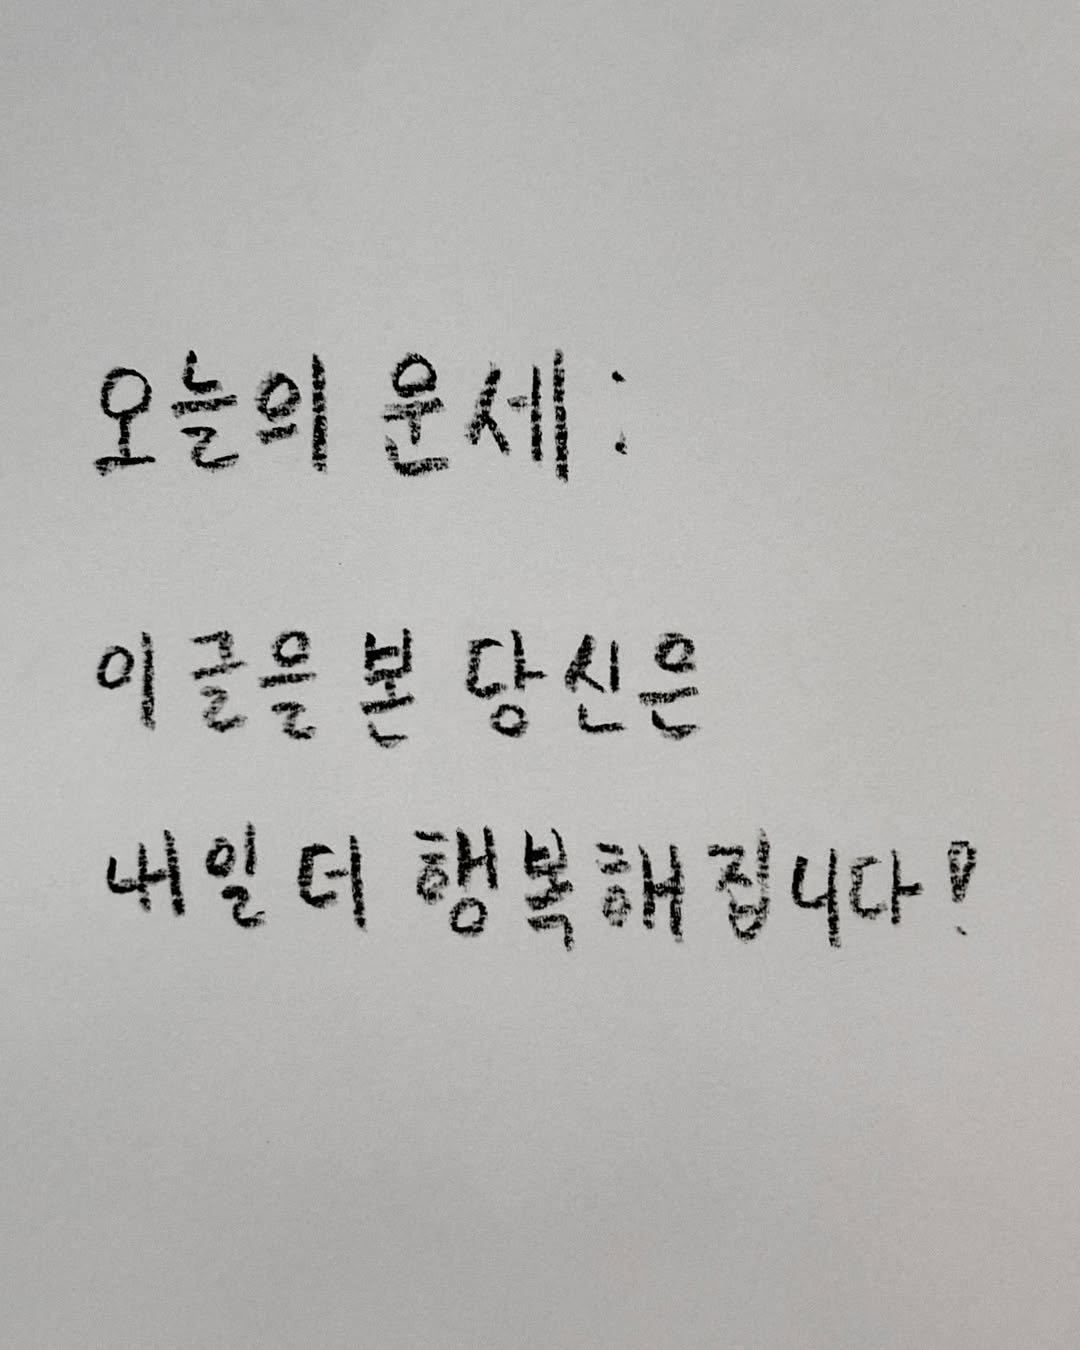 오늘의 운세:
이 글을 본 당신은
내일 더 행복해집니다!